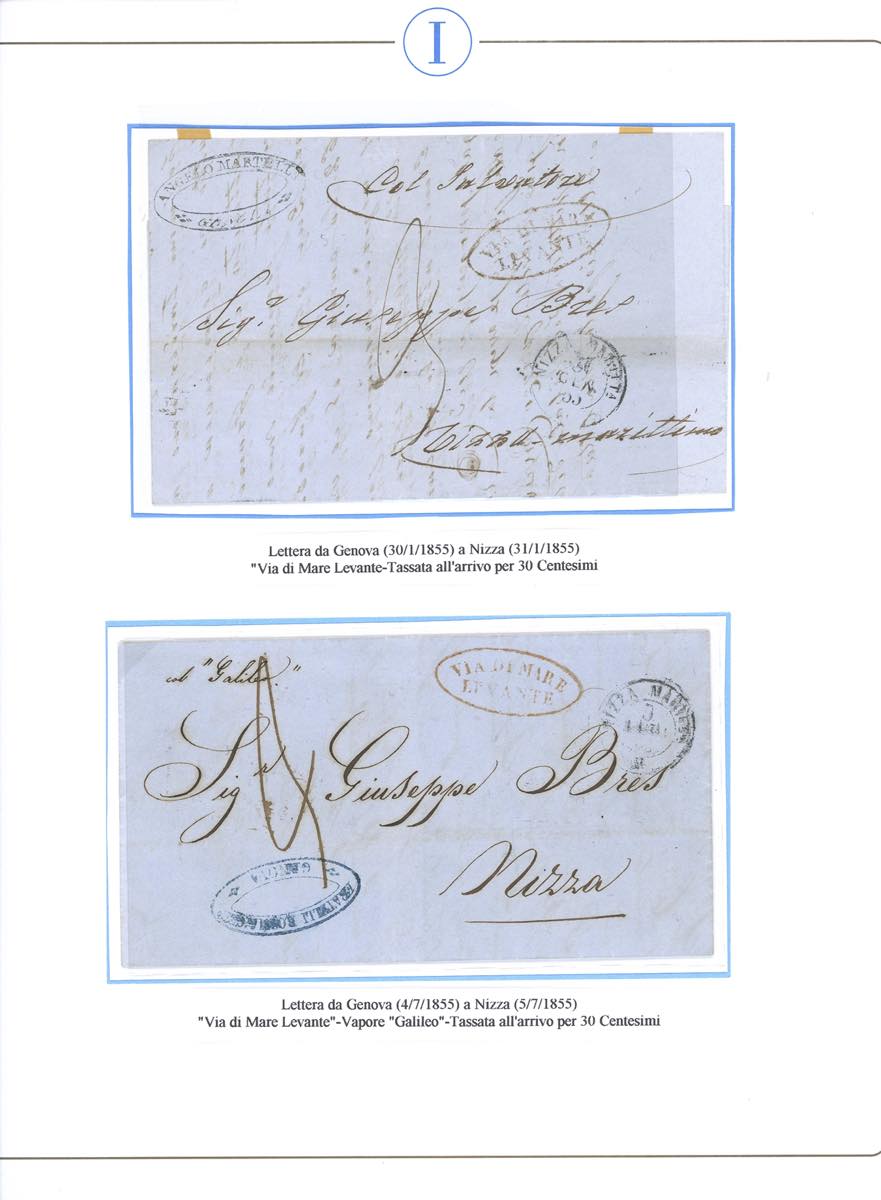 I
ANGELO MARTELLI
GENOVA
Col Salvatore
VIA DI MARE
LEVANTE
Sigr Giuseppe Bres
NIZZA MARITTA
31
GEN
55
Nizza marittima
Lettera da Genova (30/1/1855) a Nizza (31/1/1855)
"Via di Mare Levante-Tassata all'arrivo per 30 Centesimi
col "Galileo"
VIA DI MARE
LEVANTE
NIZZA MARITTA
5
LUG
Sigr Giuseppe Bres
Nizza
FRATELLI
GENOVA
Lettera da Genova (4/7/1855) a Nizza (5/7/1855)
"Via di Mare Levante"-Vapore "Galileo"-Tassata all'arrivo per 30 Centesimi